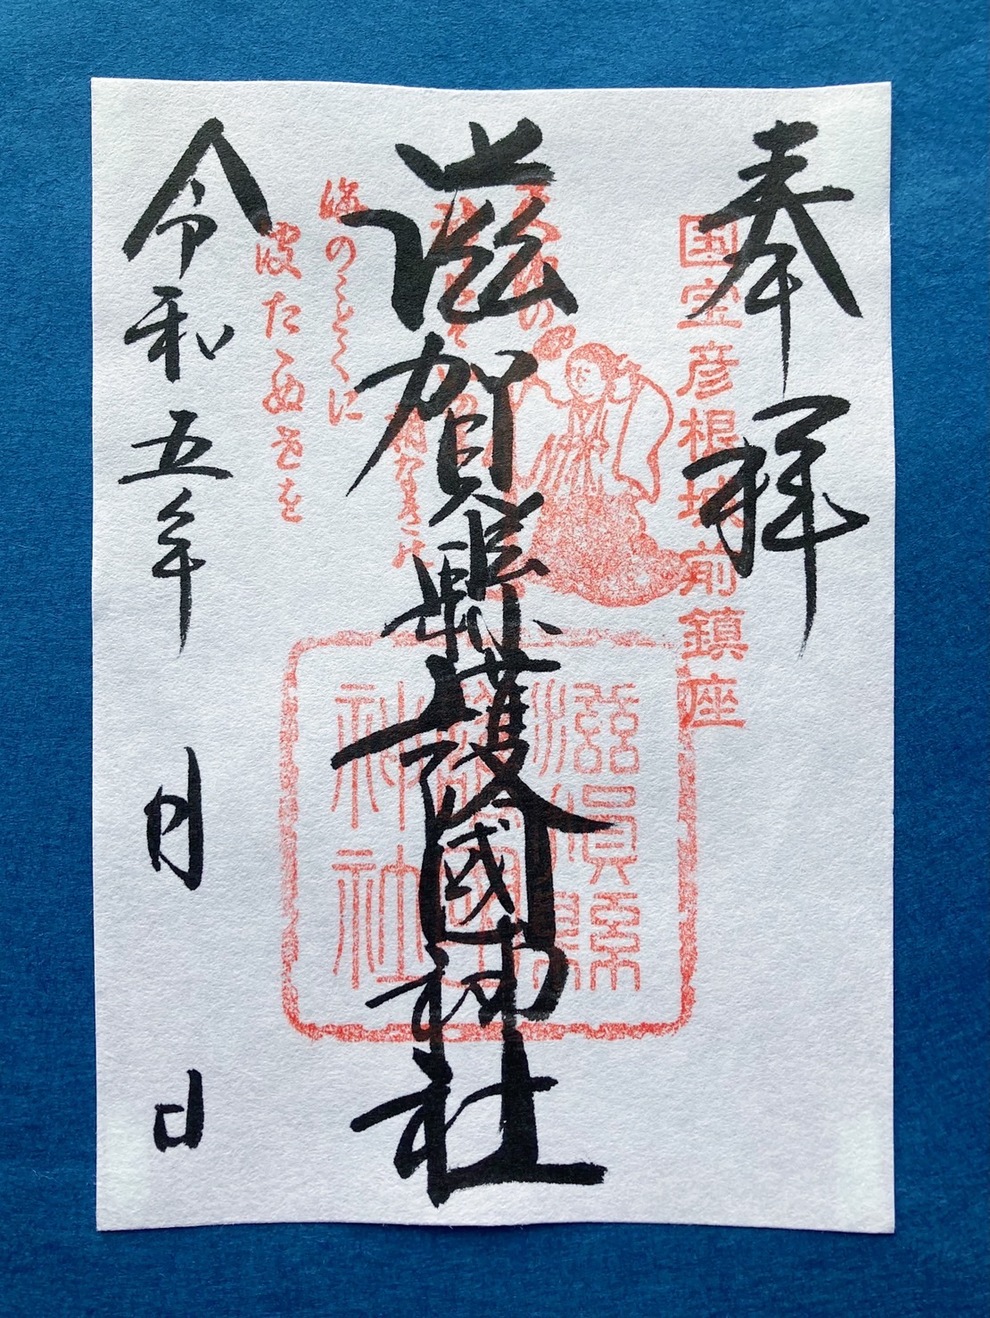 奉拝
国宝彦根城前鎮座
滋賀縣護國神社
滋賀縣
護國
神社
海のことくに
令和五年 月 日